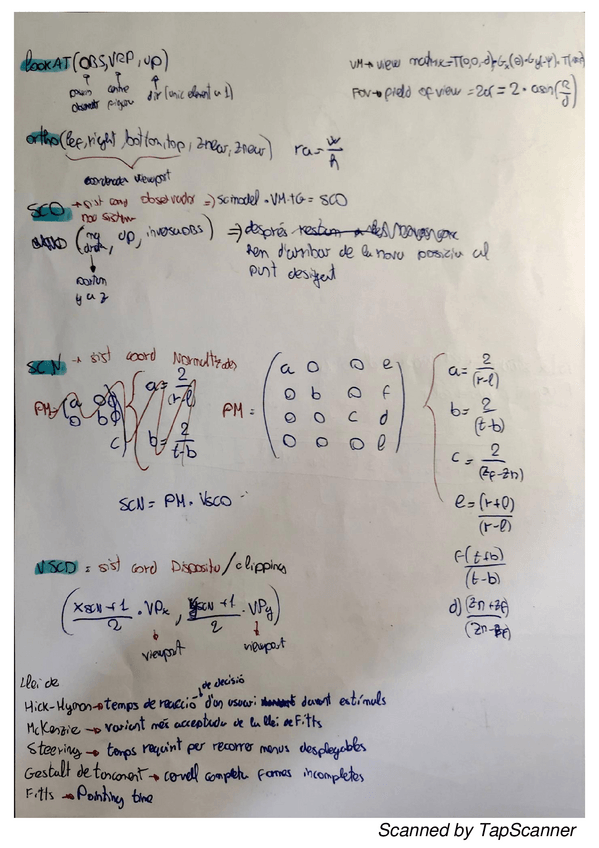 lookAT(OBS, VRP, up)
posició centre dir (unic element a 1)
observador
VM → view matrix = T(0,0,-d)·Gx(θ)·Gy(-Ψ)·T(
FOV → field of view = 2α = 2 · asin(R/d)
ortho(lef, right, bottom, top, znear, znear) ra = w/h
coordenades viewport
SCO → sist cord observador => scimodel · VM · TG = SCO
nou sistem
up, inversaOBS) => després
hem d'arribar de la nova posicio al
punt desitjat
y a z
SCN → sist coord Normalitzades
PM = (a 0 0
0 b 0
c)
a = 2/(r-l)
b = 2/(t-b)
PM = (a 0 0 e
0 b 0 f
0 0 c d
0 0 0 1)
a = 2/(r-l)
b = 2/(t-b)
c = 2/(zf-zn)
e = (r+l)/(r-l)
f (t+b)/(t-b)
d) (zn+zf)/(zn-zf)
SCN = PM · VSCO
VSCD = sist cord Dispositiu/clipping
(xSCN+1/2 · VPx, ySCN+1/2 · VPy)
viewport viewport
Llei de
de decisió
Hick-Hyman → temps de reacció d'un usuari davant estímuls
McKenzie → variant més acceptada de la llei de Fitts
Steering → temps requirit per recorrer menus desplegables
Gestalt de tancament → cervell completa formes incompletes
Fitts → Pointing time
Scanned by TapScanner